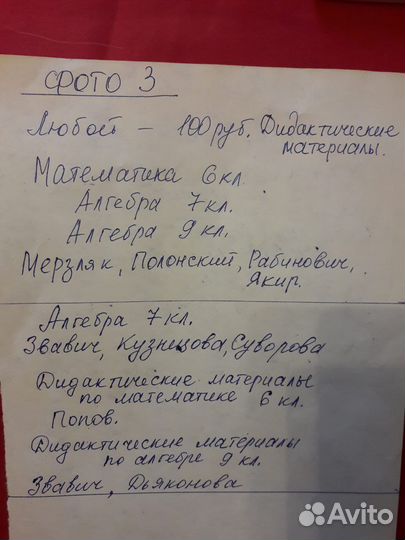 ФОТО 3
Любой - 100 руб. Дидактические
материалы.
Математика 6 кл.
Алгебра 7 кл.
Алгебра 9 кл.
Мерзляк, Полонский, Рабинович,
Якир.
Алгебра 7 кл.
Звавич, Кузнецова, Суворова
Дидактические материалы
по математике 6 кл.
Попов.
Дидактические материалы
по алгебре 9 кл.
Звавич, Дьяконова
Avito